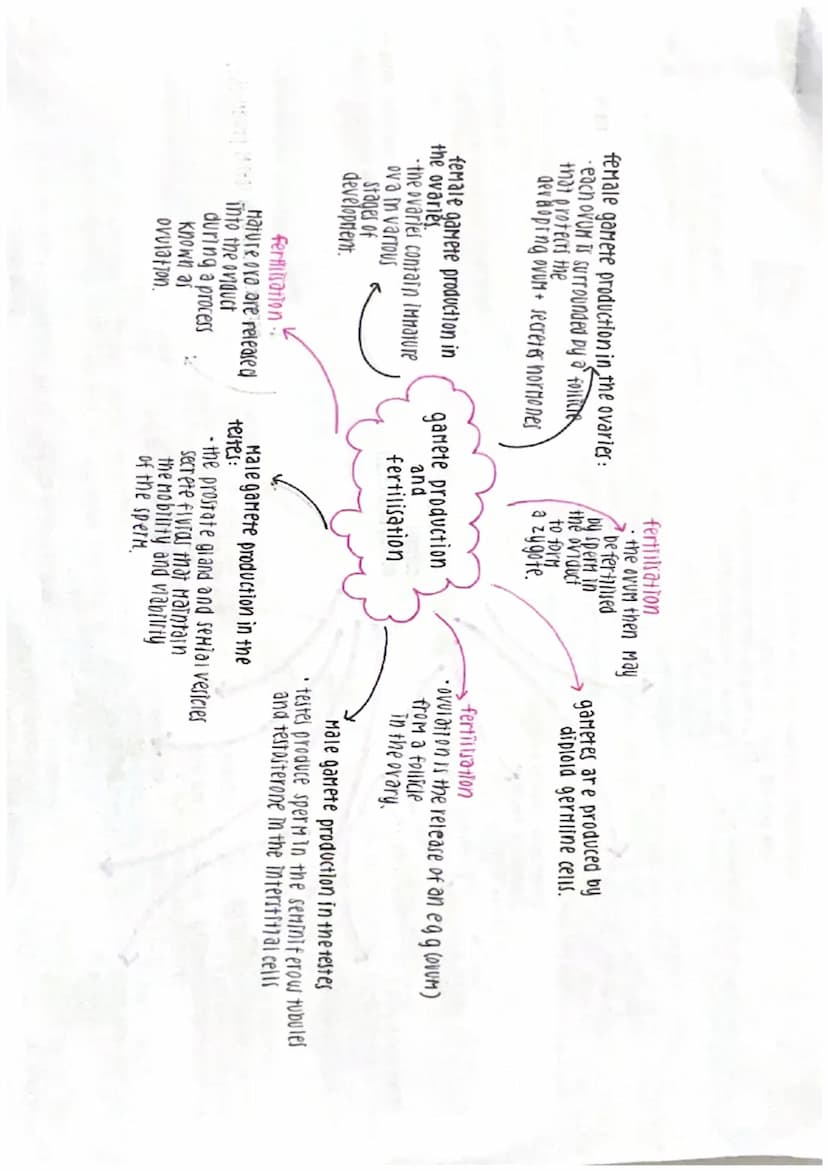 gamete production
and
fertilisation
female gamete production in the ovaries:
· each ovum is surrounded by a follicle
that protects the
developing ovum + secretes hormones
fertilisation
· the ovum then may
be fertilised
by sperm in
the oviduct
to form
a zygote.
gametes are produced by
diploid germline cells.
female gamete production in
the ovaries.
· the ovaries contain immature
ova in various
stages of
development.
fertilisation
· ovulation is the release of an egg (ovum)
from a follicle
in the ovary.
fertilisation ·
Mature ova are released
into the oviduct
during a process
known as
ovulation.
Male gamete production in the
testes:
· the prostate gland and semial vesicles
secrete fluids that maintain
the mobility and viability
of the sperm.
Male gamete production in the testes
· testes produce sperm in the seminiferous tubules
and testosterone in the interstitial cells